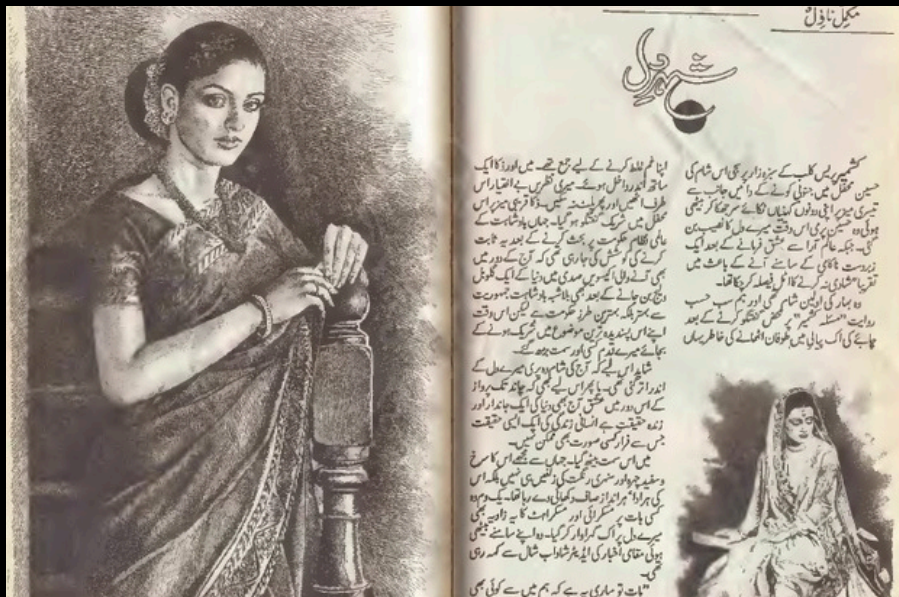 مکمل ناول
شہر دل
کشمیر پریس کلب کے سبزہ زار پر بھی اس شام کی
حسین محفل میں جنوبی کونے کے دائیں جانب سے
تیسری میز پر اپنی دونوں کہنیاں ٹکائے سر جھکا کر بیٹھی
ہوئی وہ حسین پری اس وقت میرے دل کا نصیب بن
گئی۔ جبکہ عالم آرا سے عشق فرمانے کے بعد ایک
زبردست ناکامی کے سامنے آنے کے باعث میں
تقریباً شادی نہ کرنے کا اٹل فیصلہ کر چکا تھا۔
وہ بہار کی اولین شام تھی اور ہم سب حسب
روایت "مسئلہ کشمیر" پر محض گفتگو کرنے کے بعد
چائے کی اک پیالی میں طوفان اٹھانے کی خاطر یہاں
اپنا غم غلط کرنے کے لیے جمع تھے۔ میں اور ذکا ایک
ساتھ اندر داخل ہوئے۔ میری نظریں بے اختیار اس
طرف اٹھیں اور پھر پلٹ نہ سکیں۔ ذکا قریبی میز پر اس
محفل میں شریک گفتگو ہو گیا۔ جہاں بادشاہت کے
عالمی نظام حکومت پر بحث کرنے کے بعد یہ ثابت
کرنے کی کوشش کی جا رہی تھی کہ آج کے دور میں
بھی آنے والی اکیسویں صدی میں دنیا کے ایک گلوبل
ولیج بن جانے کے بعد بھی بلاشبہ بادشاہت جمہوریت
سے بہتر بلکہ بہترین طرز حکومت ہے لیکن اس وقت
اپنے اس پسندیدہ ترین موضوع میں شریک ہونے کے
بجائے میرے قدم اسی کی اور سمت بڑھ گئے۔
شاید اس لیے کہ آج کی شام وہ پری میرے دل کے
اندر اتر گئی تھی۔ یا پھر اس لیے بھی کہ چاند تک پرواز
کے اس دور میں عشق آج بھی دنیا کی ایک جاندار اور
زندہ حقیقت ہے انسانی زندگی کی ایک ایسی حقیقت
جس سے فرار کسی صورت بھی ممکن نہیں۔
میں اس سمت بیٹھ گیا۔ جہاں سے مجھے اس کا سرخ
و سفید چہرہ اور سنہری رنگت کی زلفیں ہی نہیں بلکہ اس
کی ہر ادا ہر انداز صاف دکھائی دے رہا تھا۔ یک دم وہ
کسی بات پر مسکرائی اور مسکراہٹ کا یہ زاویہ بھی
میرے دل پر اک گہرا وار کر گیا۔ وہ اپنے سامنے بیٹھی
ہوئی مقامی اخبار کی ایڈیٹر شاداب شال سے کہہ رہی
تھی۔
"بات تو ساری یہ ہے کہ ہم میں سے کوئی بھی